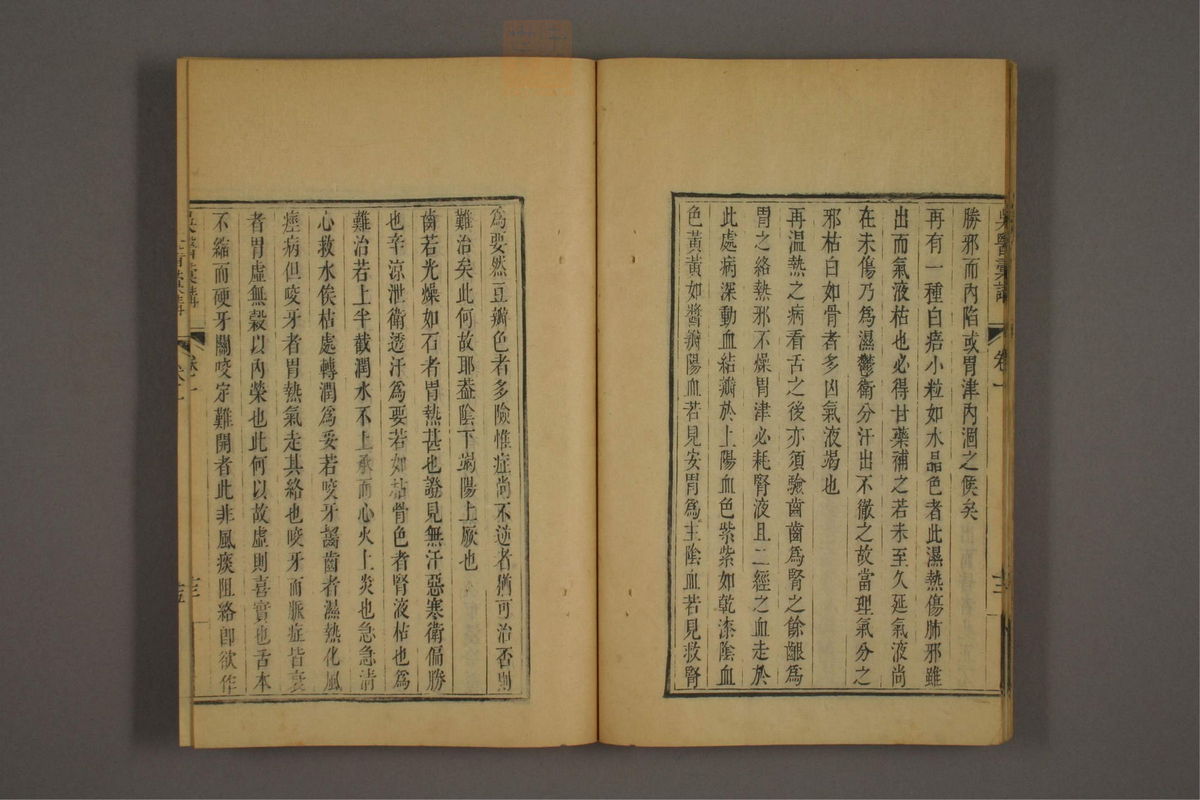 吳醫彙講 卷一 十三
勝邪而內陷或胃津內涸之候矣
再有一種白㾦小粒如水晶色者此濕熱傷肺邪雖
出而氣液枯也必得甘藥補之若未至久延氣液尚
在未傷乃為濕鬱衛分汗出不徹之故當理氣分之
邪枯白如骨者多凶氣液竭也
再溫熱之病看舌之後亦須驗齒齒為腎之餘齦為
胃之絡熱邪不燥胃津必耗腎液且二經之血走於
此處病深動血結瓣於上陽血色紫紫如乾漆陰血
色黃黃如醬瓣陽血若見安胃為主陰血若見救腎
為要然豆瓣色者多險惟症尚不逆者猶可治否則
難治矣此何故耶蓋陰下竭陽上厥也
齒若光燥如石者胃熱甚也證見無汗惡寒衛偏勝
也辛涼泄衛透汗為要若如枯骨色者腎液枯也為
難治若上半截潤水不上承而心火上炎也急急清
心救水俟枯處轉潤為妥若咬牙齧齒者濕熱化風
痙病但咬牙者胃熱氣走其絡也咬牙而脈症皆衰
者胃虛無穀以內榮也此何以故虛則喜實也舌本
不縮而硬牙關咬定難開者此非風痰阻絡即欲作
吳醫彙講 卷一 十三